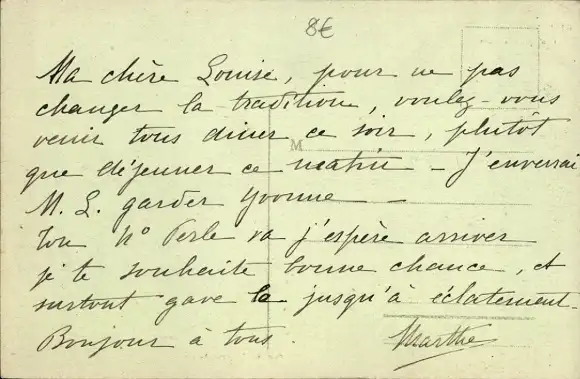 8€
Ma chère Louise, pour ne pas
changer la tradition, voulez-vous
venir tous diner ce soir, plutôt
M
que déjeuner ce matin - J'enverrai
M. L. garder Yvonne -
Ton N° Perle va j'espère arriver
je te souhaite bonne chance, et
surtout gave le jusqu'à éclatement
Bonjour à tous.
Marthe